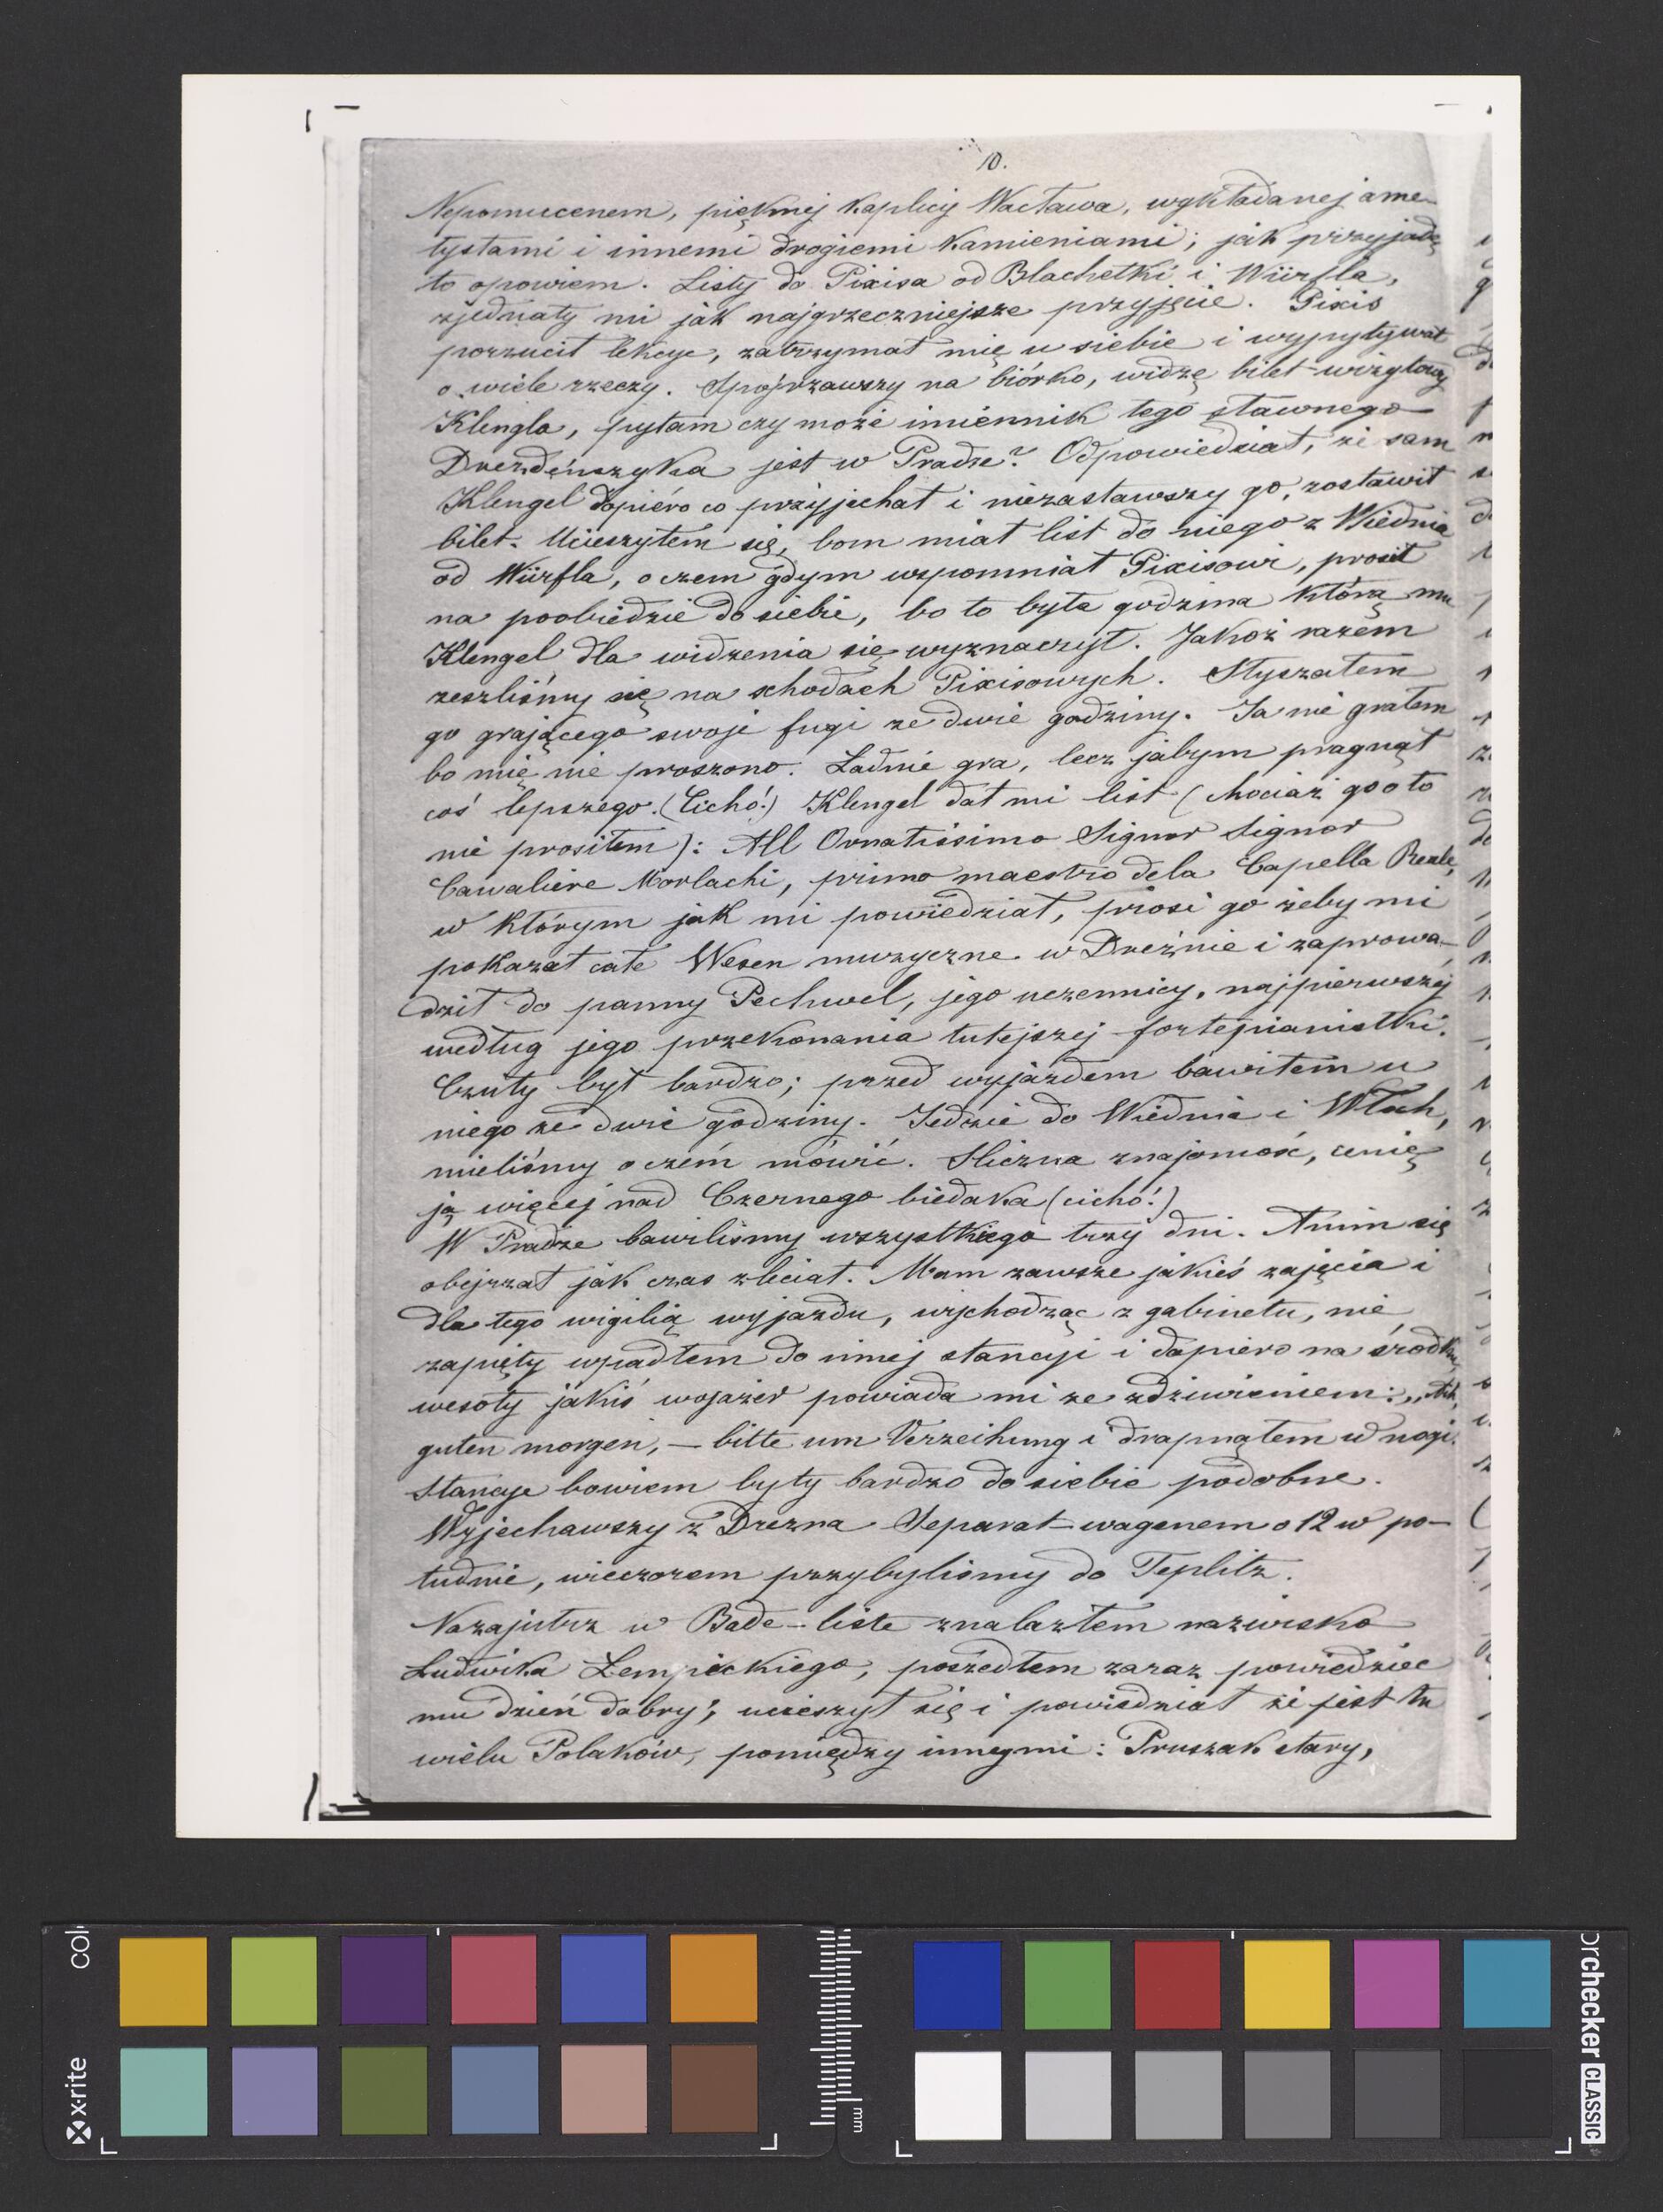 10.
Nepomucenem, pięknej kaplicy Wacława, wykładanej ame-
tystami i innemi drogiemi kamieniami; jak przyjadę
to opowiem. Listy do Pixisa od Blachetki i Würfla,
zjednały mi jak najgrzeczniejsze przyjęcie. Pixis
porzucił lekcye, zatrzymał mię u siebie i wypytywał
o wiele rzeczy. Spojrzawszy na biórko, widzę bilet-wizytowy
Klengla, pytam czy może imiennik tego sławnego
Drezdeńszyka jest w Pradze? Odpowiedział, że sam
Klengel dopiéro co przyjechał i niezastawszy go, zostawił
bilet. Ucieszyłem się, bom miał list do niego z Wiednia
od Würfla, o czem gdym wspomniał Pixisowi, prosił
na poobiedzie do siebie, bo to była godzina którą mu
Klengel dla widzenia się wyznaczył. Jakoż razem
zeszliśmy się na schodach Pixisowych. Słyszałem
go grającego swoje fugi ze dwie godziny. Ja nie grałem
bo mię nie proszono. Ładnie gra, lecz jabym pragnął
coś lepszego. (Cicho!) Klengel dał mi list (chociaż go o to
nie prosiłem): All Ornatissimo Signor Signor
Cavaliere Morlachi, primo maestro dela Capella Reale,
w którym jak mi powiedział, prosi go żeby mi
pokazał całe Wesen muzyczne w Dreźnie i zaprowa-
dził do panny Pechwel, jego uczennicy, najpierwszej
według jego przekonania tutejszej fortepianistki.
Czuły był bardzo; przed wyjazdem bawiłem u
niego ze dwie godziny. Jedzie do Wiednia i Włoch,
mieliśmy o czém mówić. Sliczna znajomość, cenię
ją więcej nad Czernego biedaka (cicho!)
W Pradze bawiliśmy wszystkiego trzy dni. Anim się
obejrzał jak czas zleciał. Mam zawsze jakieś zajęcia i
dla tego wigilią wyjazdu, wychodząc z gabinetu, nie
zapięty wpadłem do innej stancyi i dopiero na środku
wesoły jakiś wojażer powiada mi ze zdziwieniem: „Ach,
guten morgen, — bitte um Verzeihung i drapnąłem w nogi.
Stancye bowiem były bardzo do siebie podobne.
Wyjechawszy z Drezna Separat-wagenem o 12 w po-
łudnie, wieczorem przybyliśmy do Teplitz.
Nazajutrz w Bade-liste znalazłem nazwisko
Ludwika Łempickiego, poszedłem zaraz powiedzieć
mu dzień dobry; ucieszył się i powiedział że jest tu
wielu Polaków, pomiędzy innymi: Pruszak stary,
x·rite
mm
orchecker CLASSIC